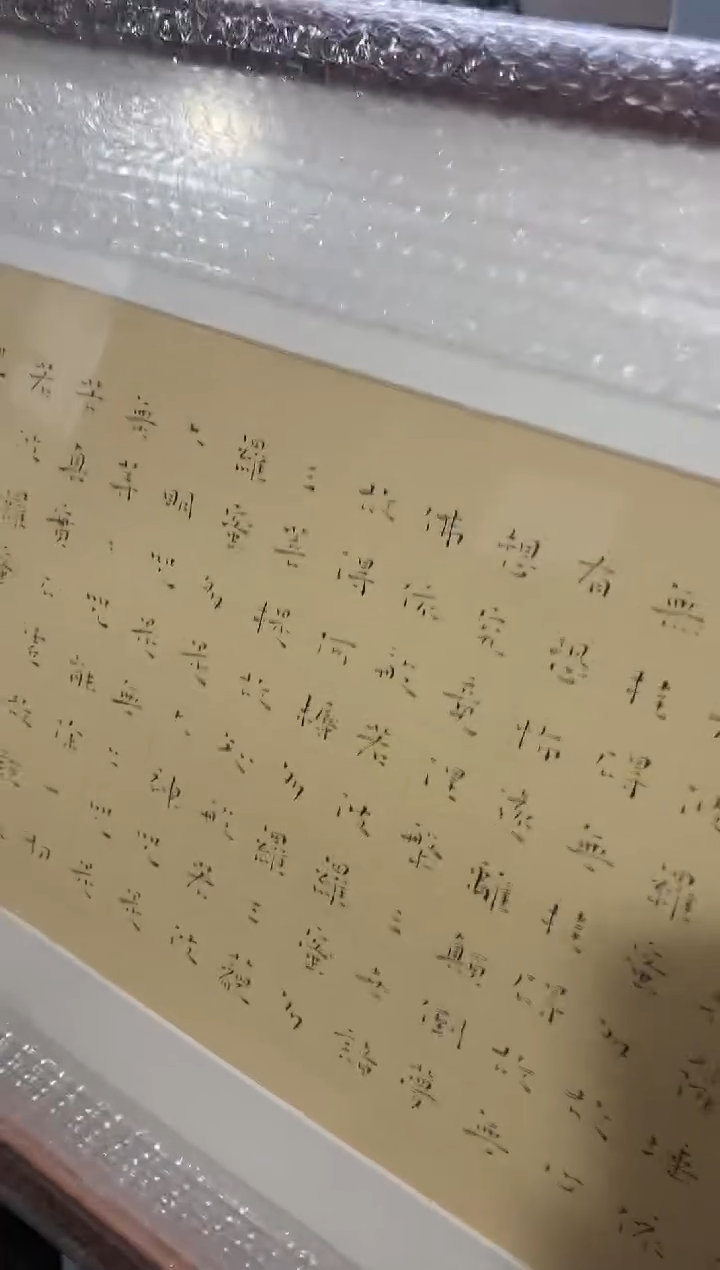 薩埵依
波羅蜜多故心
無罣礙無罣礙故無
有恐怖遠離顛倒夢
想究竟涅槃三世諸
佛依般若波羅蜜多
故得阿耨多羅三藐
三菩提故知般若波
羅蜜多是大神咒是
大明咒是無上咒是
無等等咒能除一切
苦真實不虛故說
若波羅蜜